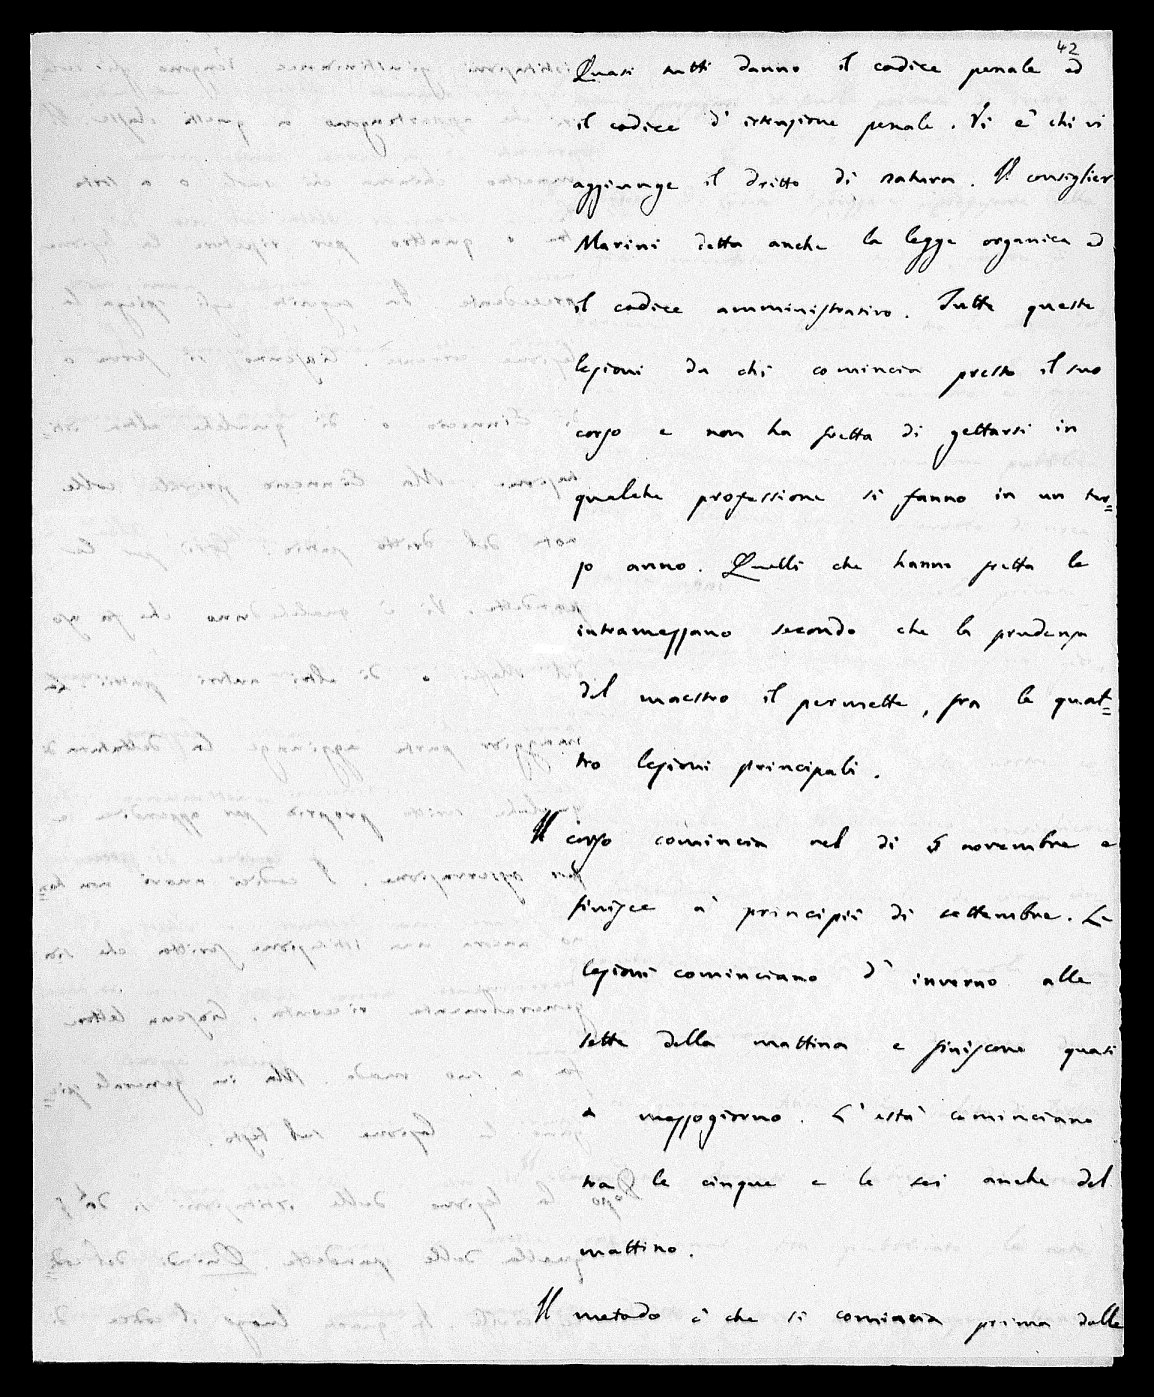 42
Quasi tutti danno il codice penale ed
il codice d' istruzione penale. Vi è chi vi
aggiunge il dritto di natura. Il consiglier
Marini detta anche la legge organica ed
il codice amministrativo. Tutte queste
lezioni da chi comincia presto il suo
corso e non ha fretta di gettarsi in
qualche professione si fanno in un ter=
zo anno. Quelli che hanno fretta le
intramezzano secondo che la prudenza
del maestro il permette, fra le quat=
tro lezioni principali.
Il corso comincia nel dì 5 novembre e
finisce a' principii di settembre. Le
lezioni cominciano d' inverno alle
sette della mattina e finiscono quasi
a mezzogiorno. L' està cominciano
tra le cinque e le sei anche del
mattino.
Il metodo è che si comincia prima dalle